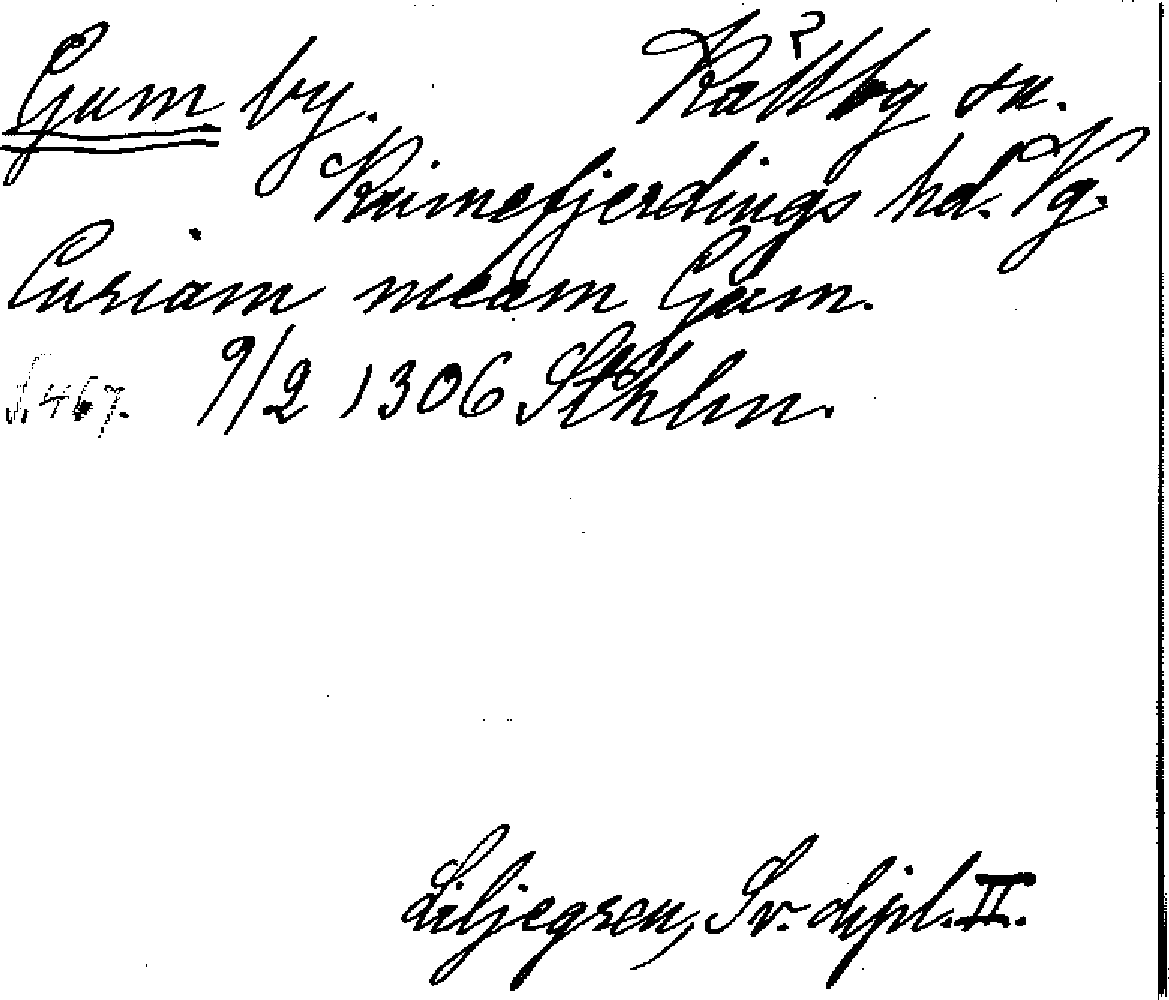 Gum by. Kållby sn.
Kinnefjerdings hd. Vg.
Curiam meam Gum.
S. 467. 9/2 1306 Sthlm.
Liljegren, Sv. dipl. II.